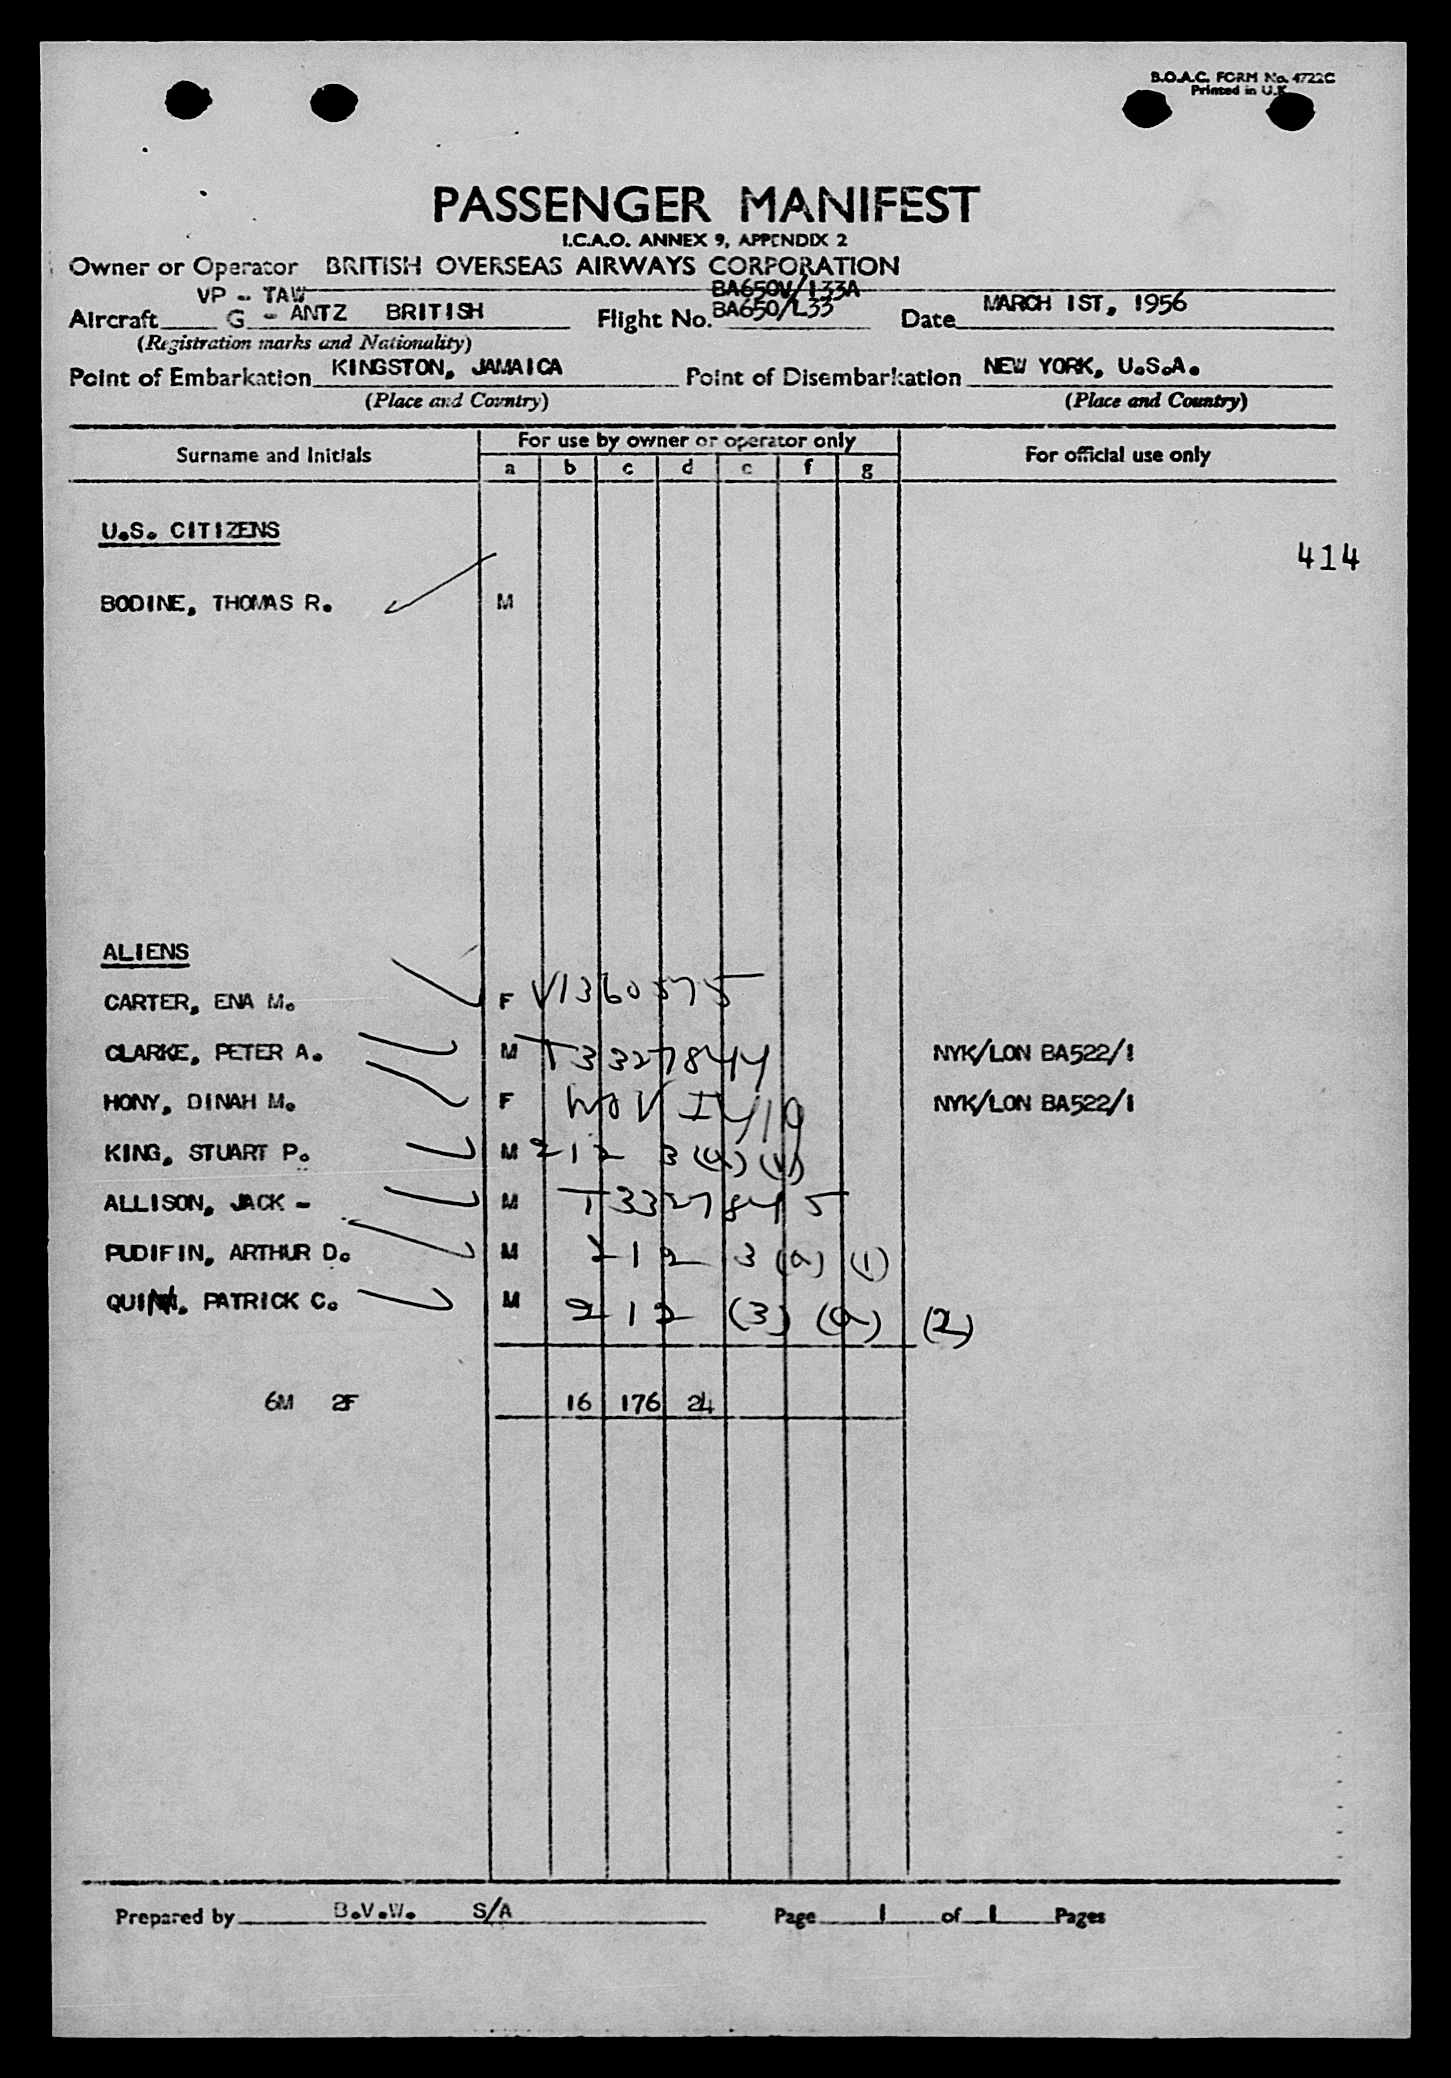 B.O.A.C. FORM No. 4722C
Printed in U.K.
PASSENGER MANIFEST
I.C.A.O. ANNEX 9, APPENDIX 2
Owner or Operator BRITISH OVERSEAS AIRWAYS CORPORATION
VP - TAW BA650V/133A
Aircraft G - ANTZ BRITISH Flight No. BA650/L33 Date MARCH 1ST, 1956
(Registration marks and Nationality)
Point of Embarkation KINGSTON, JAMAICA Point of Disembarkation NEW YORK, U.S.A.
(Place and Country) (Place and Country)
Surname and Initials For use by owner or operator only For official use only
a b c d e f g
U.S. CITIZENS
414
BODINE, THOMAS R. M
ALIENS
CARTER, ENA M. F V1360575
CLARKE, PETER A. M T3327844 NYK/LON BA522/1
HONY, DINAH M. F NYK/LON BA522/1
KING, STUART P. M 212 3 (a) (1)
ALLISON, JACK - M T3327845
PUDIFIN, ARTHUR D. M 212 3 (a) (1)
QUINN, PATRICK C. M 212 (3) (a) (2)
6M 2F 16 176 24
Prepared by B.V.W. S/A Page 1 of 1 Pages